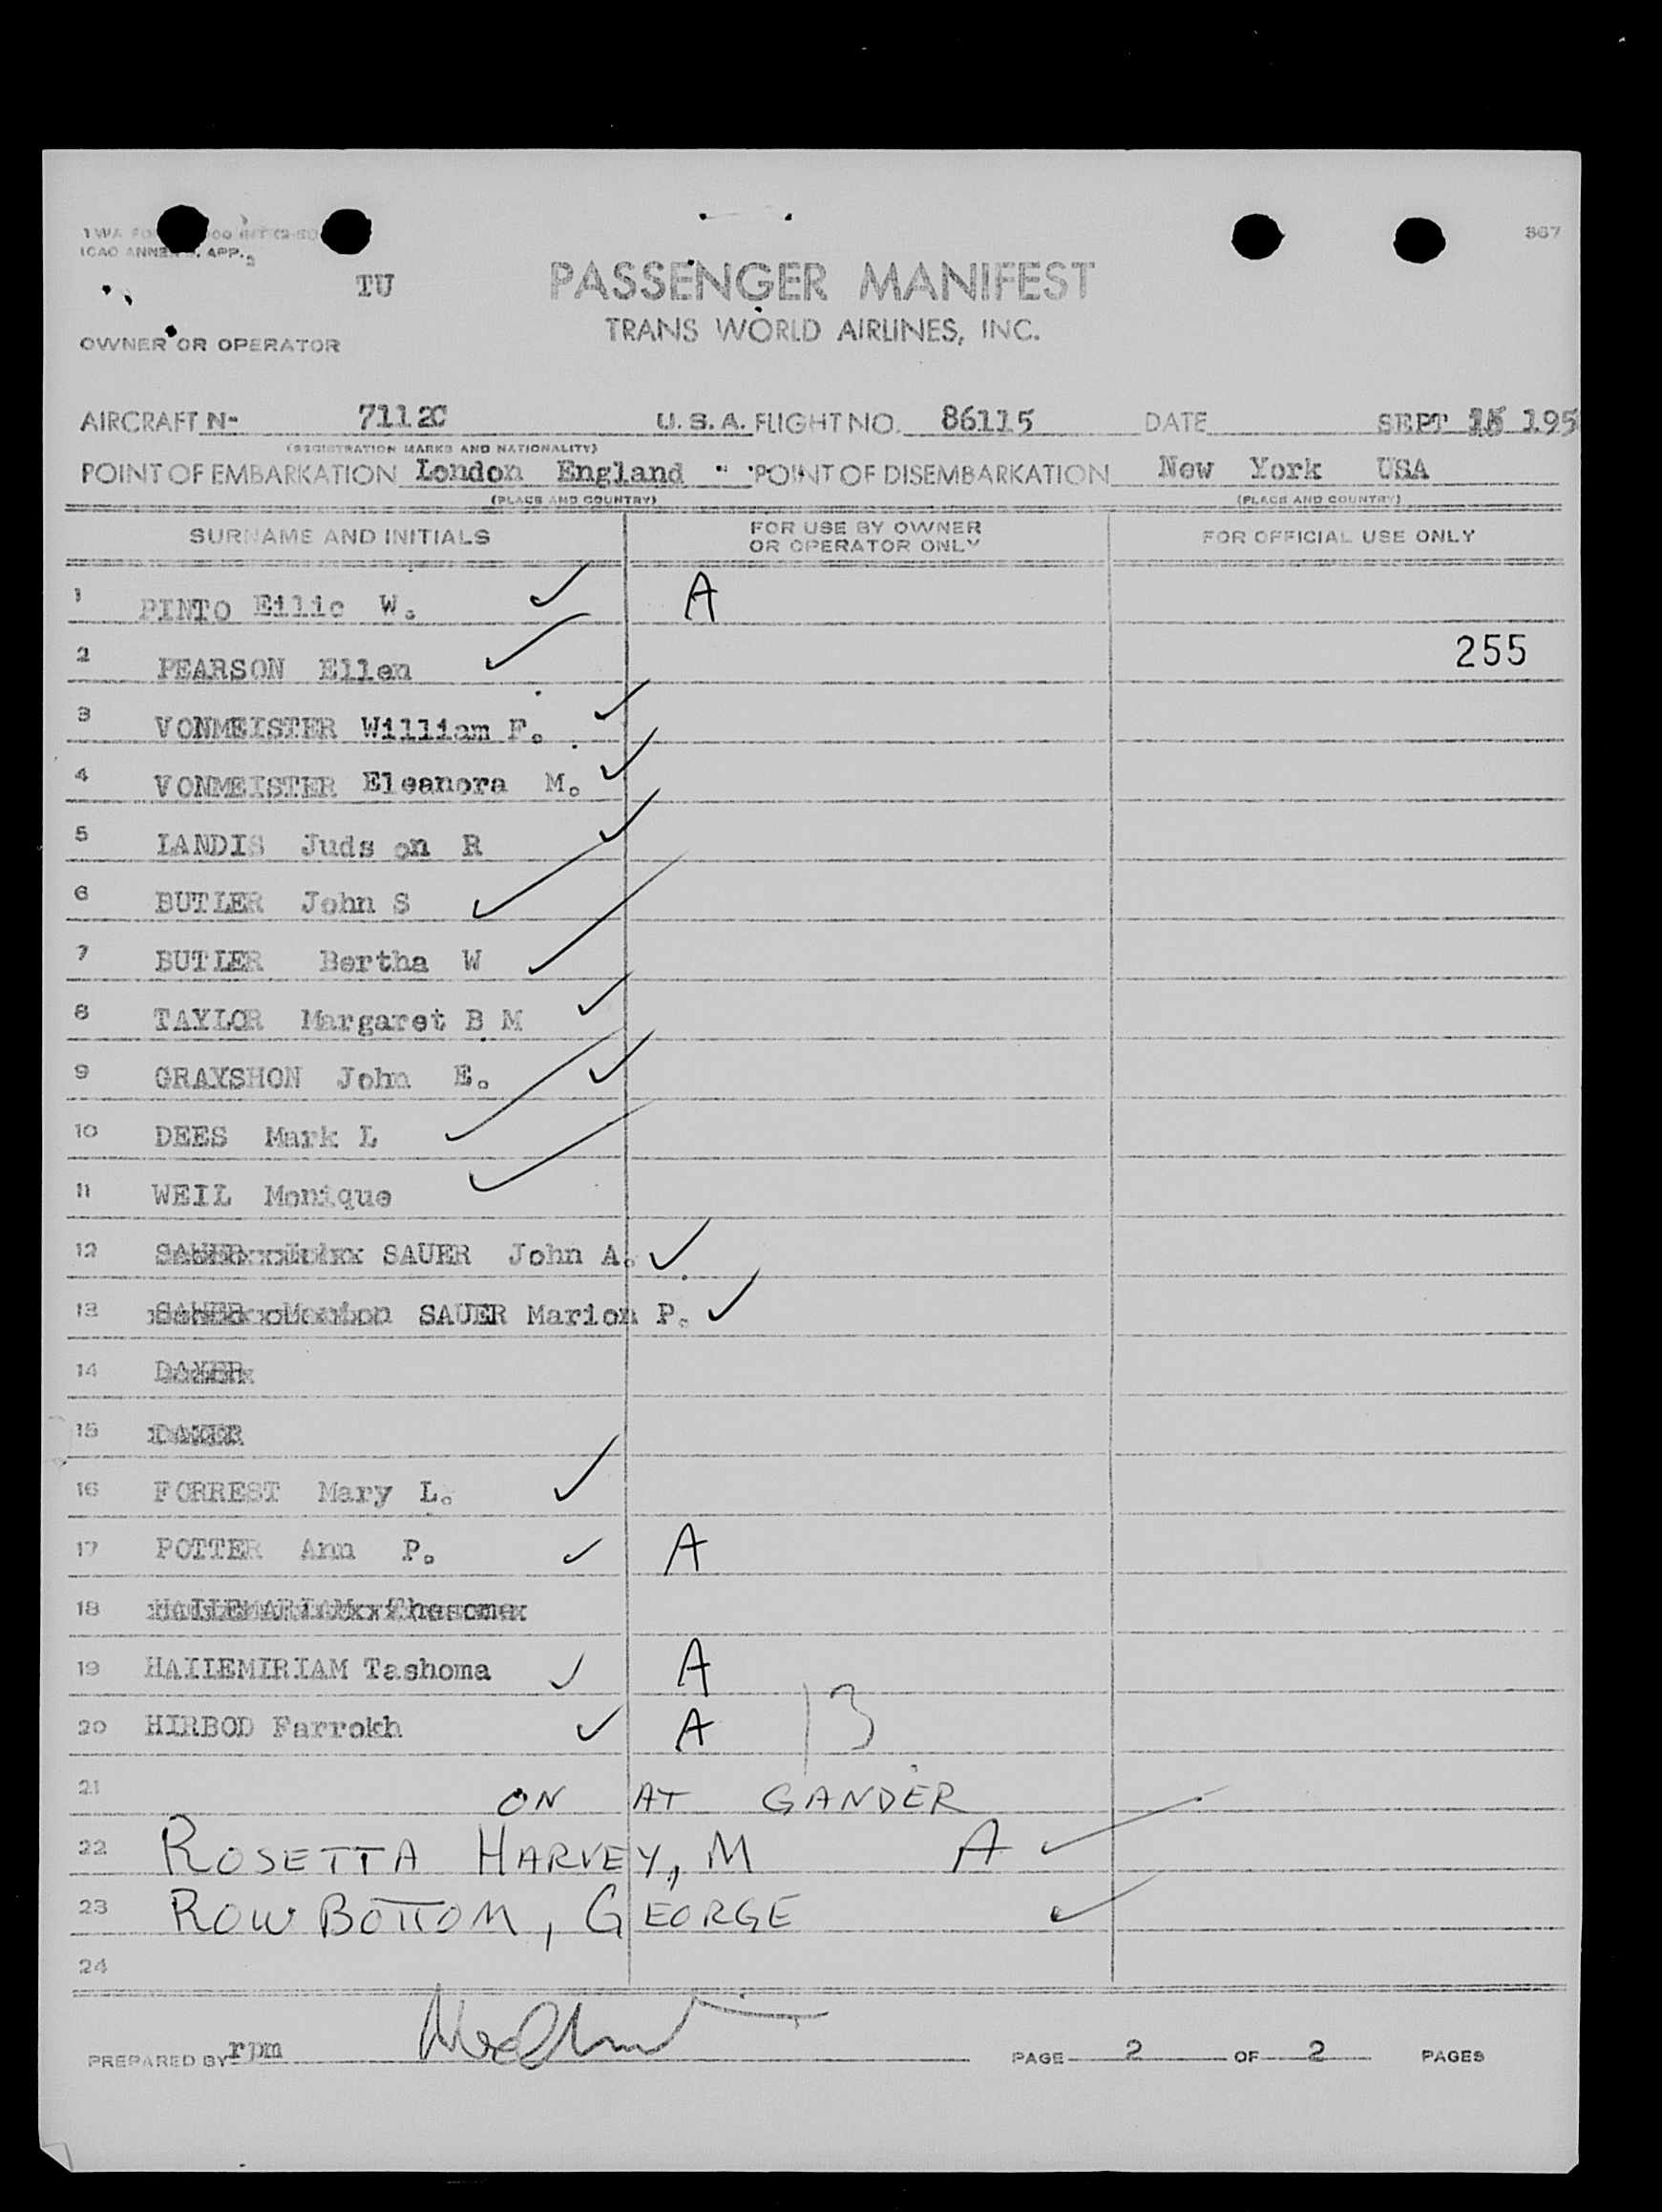 ICAO ANNE APP. 2
367
TU
PASSENGER MANIFEST
TRANS WORLD AIRLINES, INC.
OWNER OR OPERATOR
AIRCRAFT N- 7112C U.S.A. FLIGHT NO. 86115 DATE SEPT 195
(REGISTRATION MARKS AND NATIONALITY)
POINT OF EMBARKATION London England POINT OF DISEMBARKATION New York USA
(PLACE AND COUNTRY) (PLACE AND COUNTRY)
SURNAME AND INITIALS FOR USE BY OWNER OR OPERATOR ONLY FOR OFFICIAL USE ONLY
1 PINTO Eilic W. ✓ A
255
2 PEARSON Ellen ✓
3 VONMEISTER William F. ✓
4 VONMEISTER Eleanora M. ✓
5 LANDIS Juds on R ✓
6 BUTLER John S ✓
7 BUTLER Bertha W ✓
8 TAYLOR Margaret B M ✓
9 GRAYSHON John E. ✓
10 DEES Mark L ✓
11 WEIL Monique ✓
12 SAUER John A. ✓
13 SAUER Marion P. ✓
14
15
16 FORREST Mary L. ✓
17 POTTER Ann P. ✓ A
18
19 HAILEMIRIAM Tashoma ✓ A
20 HIRBOD Farrokh ✓ A 13
21 ON AT GANDER
22 ROSETTA HARVEY, M A ✓
23 ROWBOTTOM, GEORGE ✓
24
PREPARED BY rpm PAGE 2 OF 2 PAGES